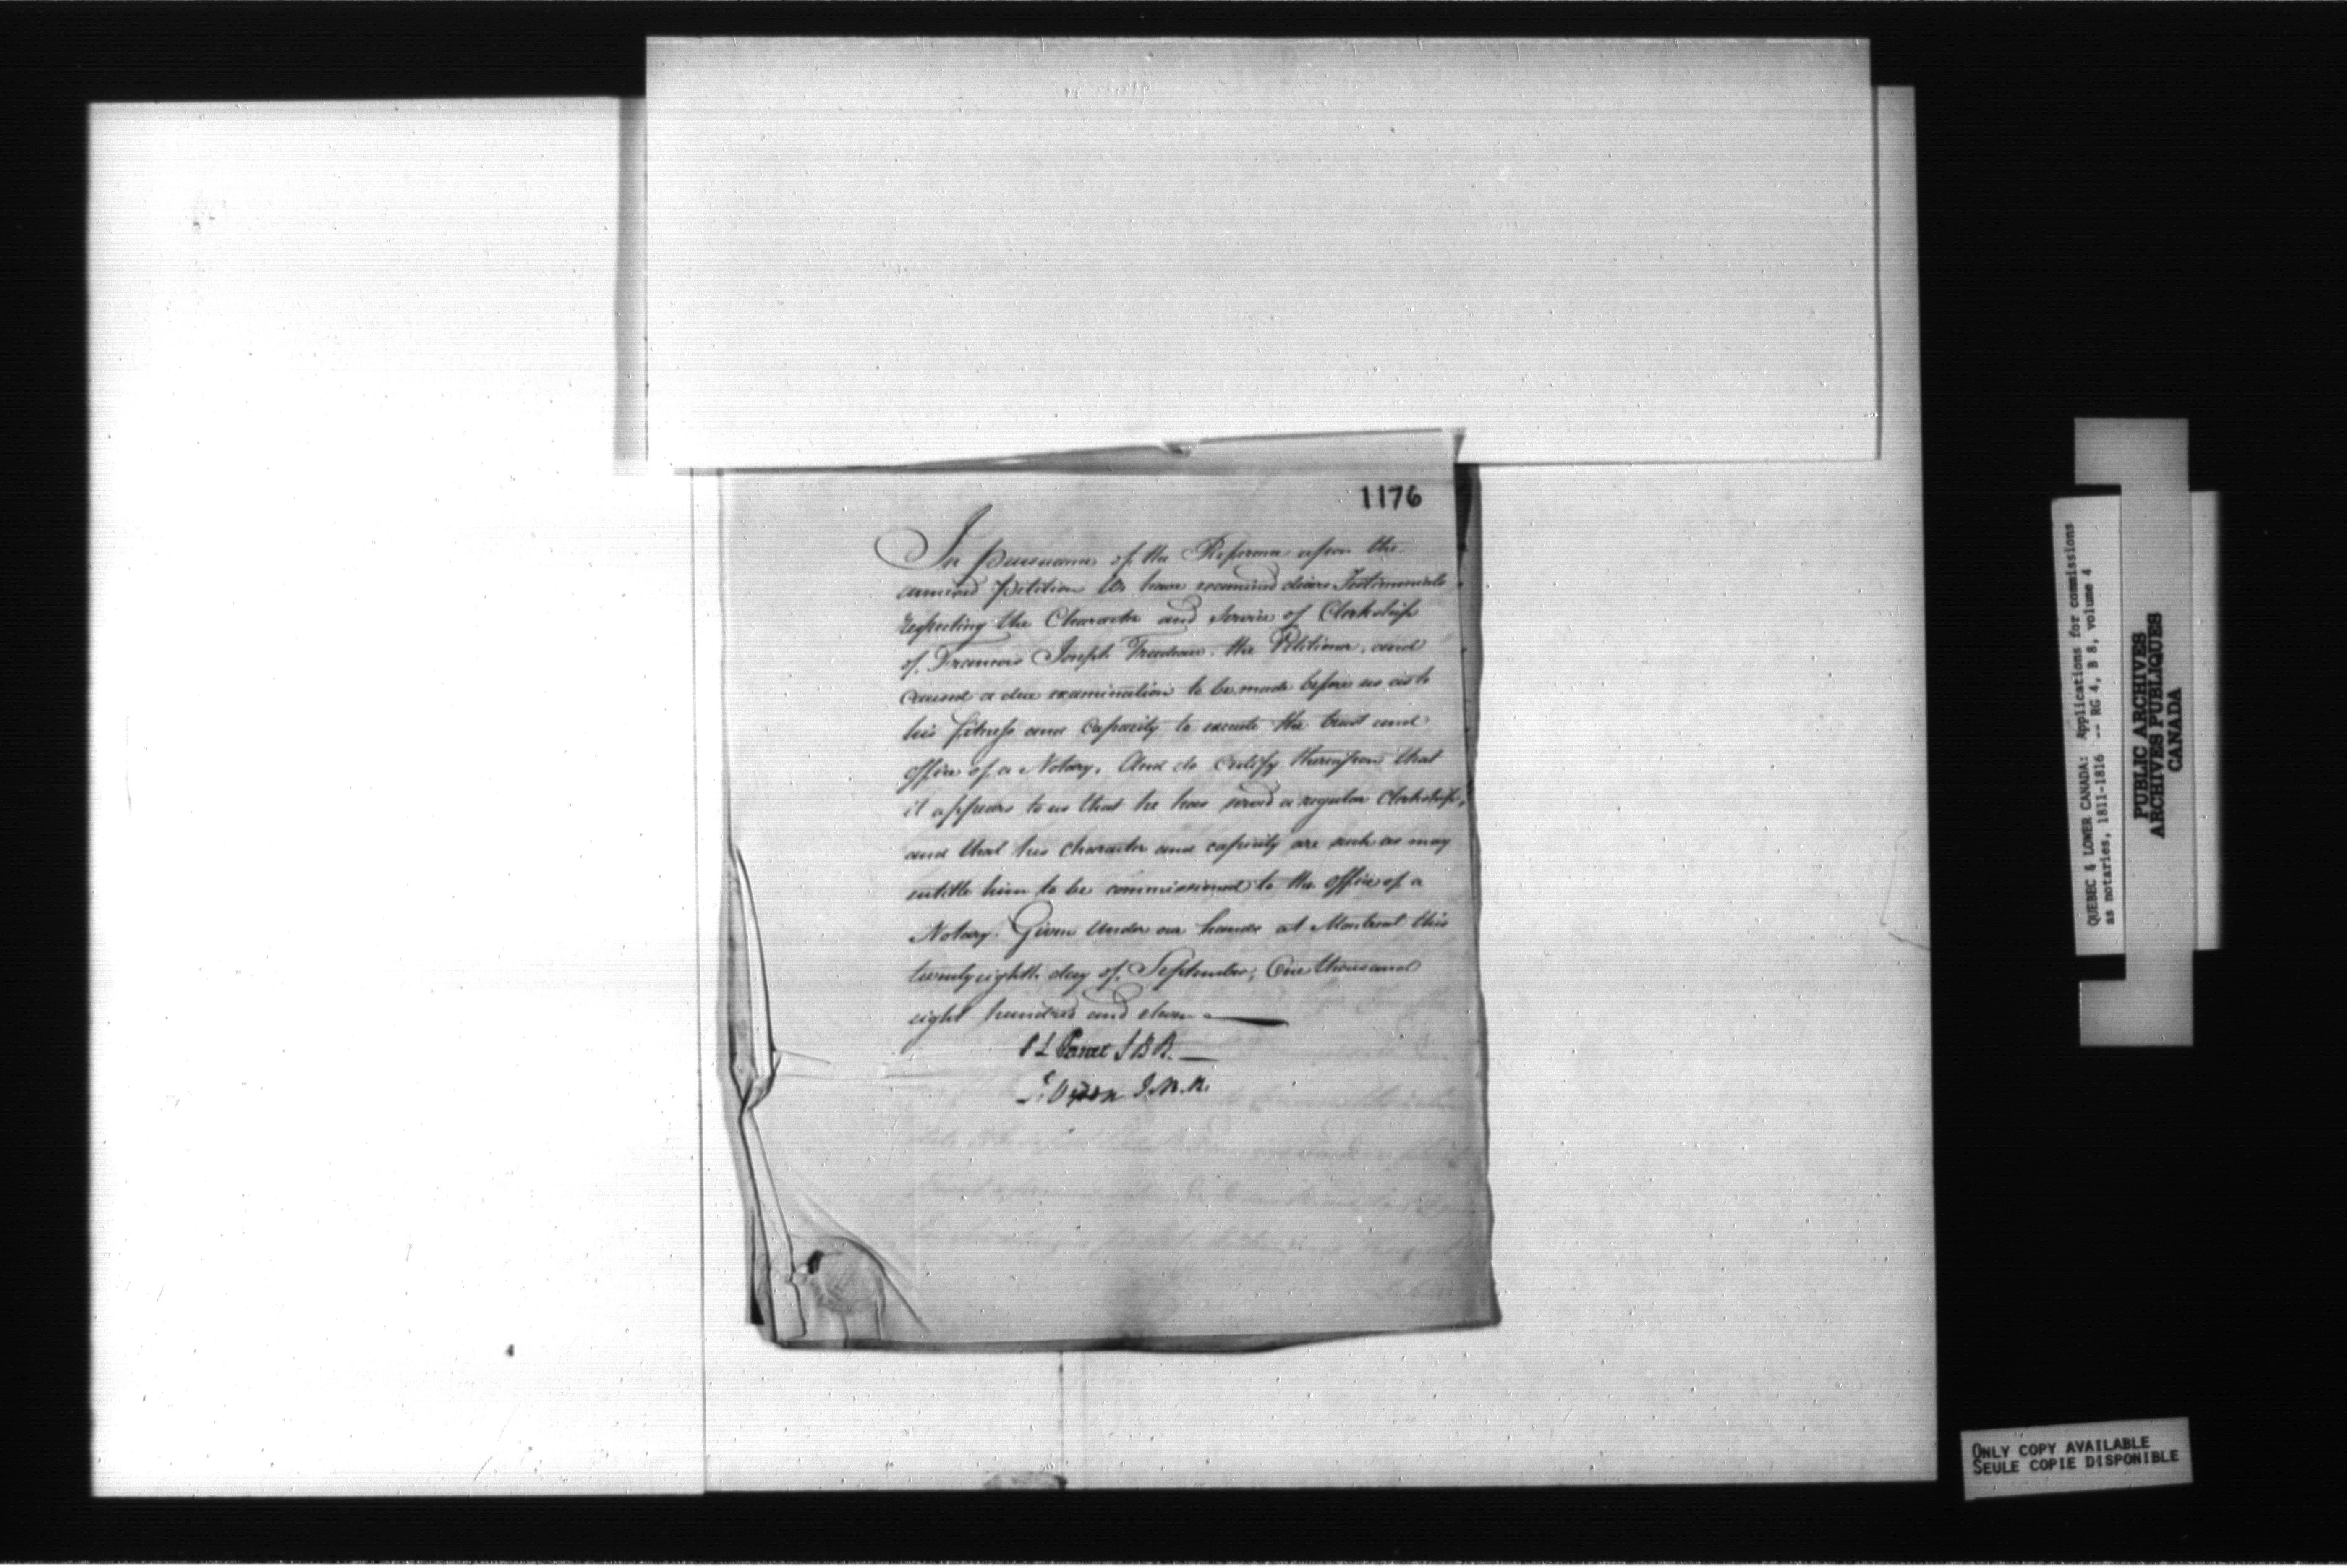 1176
In pursuance of the Reference upon the
annexed Petition We have examined divers Testimonials
respecting the Character and Service of Clerkship
of Francois Joseph Trudeau, the Petitioner, and
caused a due examination to be made before us as to
his fitness and capacity to execute the trust and
office of a Notary. And do certify thereupon that
it appears to us that he has served a regular Clerkship,
and that his character and capacity are such as may
entitle him to be commissioned to the office of a
Notary. Given under our hands at Montreal this
twenty eighth day of September, One thousand
eight hundred and eleven
P L Panet J B R.
I. Ogden J.B.R.
QUEBEC & LOWER CANADA: Applications for commissions
as notaries, 1811-1816 -- RG 4, B 8, volume 4
PUBLIC ARCHIVES
ARCHIVES PUBLIQUES
CANADA
ONLY COPY AVAILABLE
SEULE COPIE DISPONIBLE